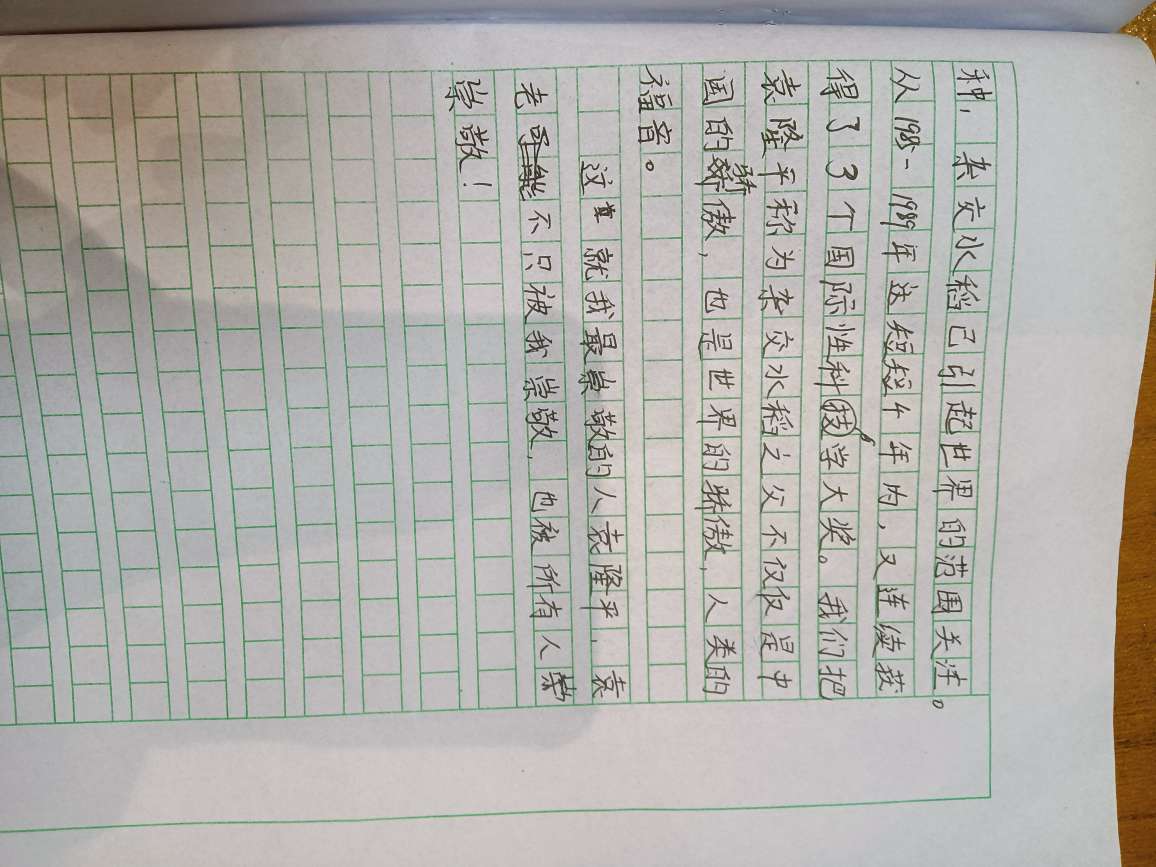 种，杂交水稻已引起世界的范围关注。
从1985-1989年这短短4年内，又连续获
得了3个国际性科技学大奖。我们把
袁隆平称为杂交水稻之父不仅仅是中
国的骄傲，也是世界的骄傲，人类的
福音。
这就我最崇敬的人袁隆平，袁
老不只被我崇敬，也被所有人
崇敬！